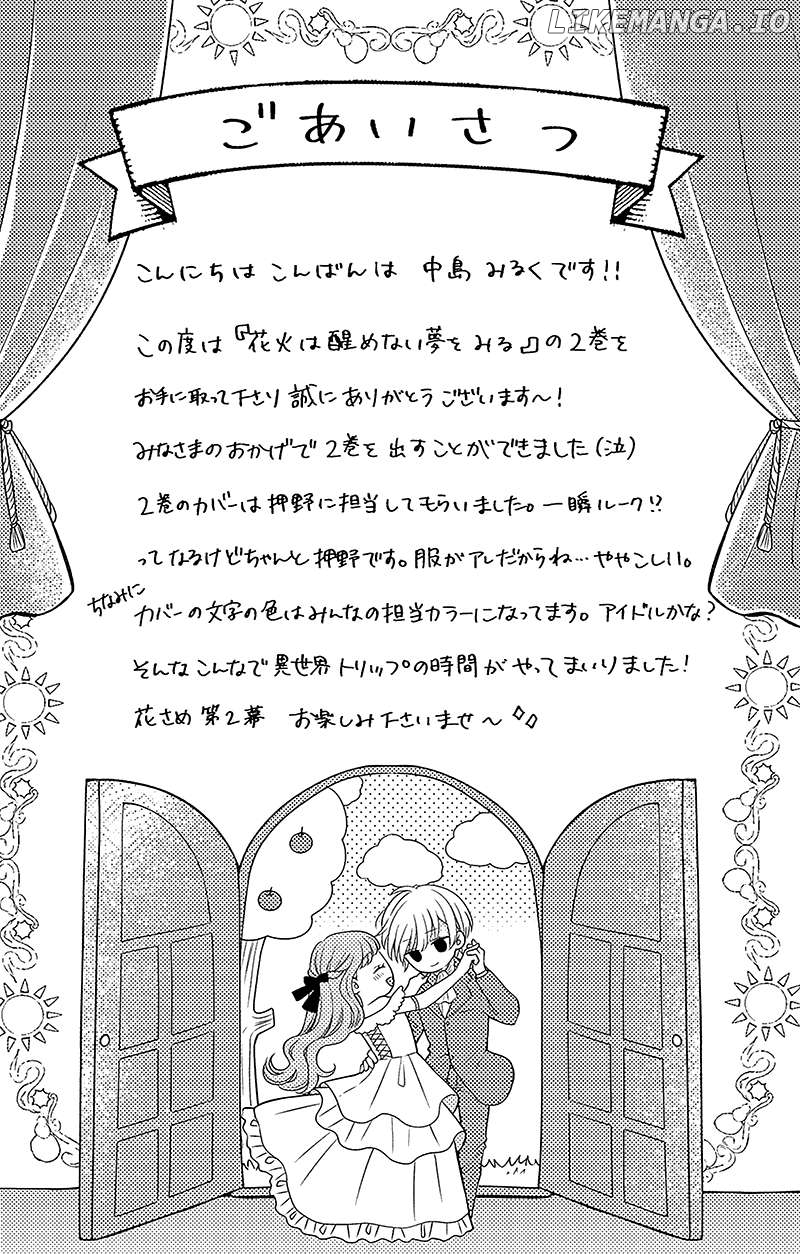 LIKEMANGA.IO
ごあいさつ
こんにちは こんばんは 中島 みるくです!!
この度は『花火は醒めない夢をみる』の2巻を
お手に取って下さり 誠にありがとうございます〜!
みなさまのおかげで 2巻を出すことができました(泣)
2巻のカバーは押野に担当してもらいました。一瞬ルーク!?
ってなるけどちゃんと押野です。服がアレだからね…ややこしい。
ちなみに
カバーの文字の色はみんなの担当カラーになってます。アイドルかな?
そんなこんなで異世界トリップの時間がやってまいりました!
花さめ 第2幕 お楽しみ下さいませ〜